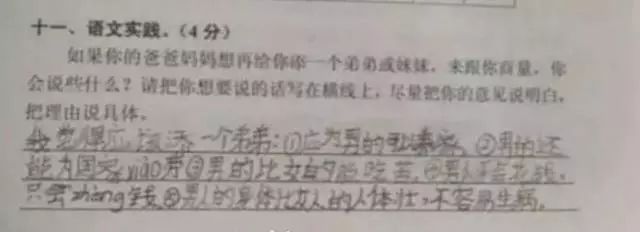 十一、语文实践。(4分)
如果你的爸爸妈妈想再给你添一个弟弟或妹妹，来跟你商量，你
会说些什么？请把你想要说的话写在横线上，尽量把你的意见说明白，
把理由说具体。
我觉得应该添一个弟弟：①应为男的 ②男的还
能为国家 ③男的比女的能吃苦，④男人不会花钱，
只会zhèng钱⑤男人的身体比女人的人体壮，不容易生病。